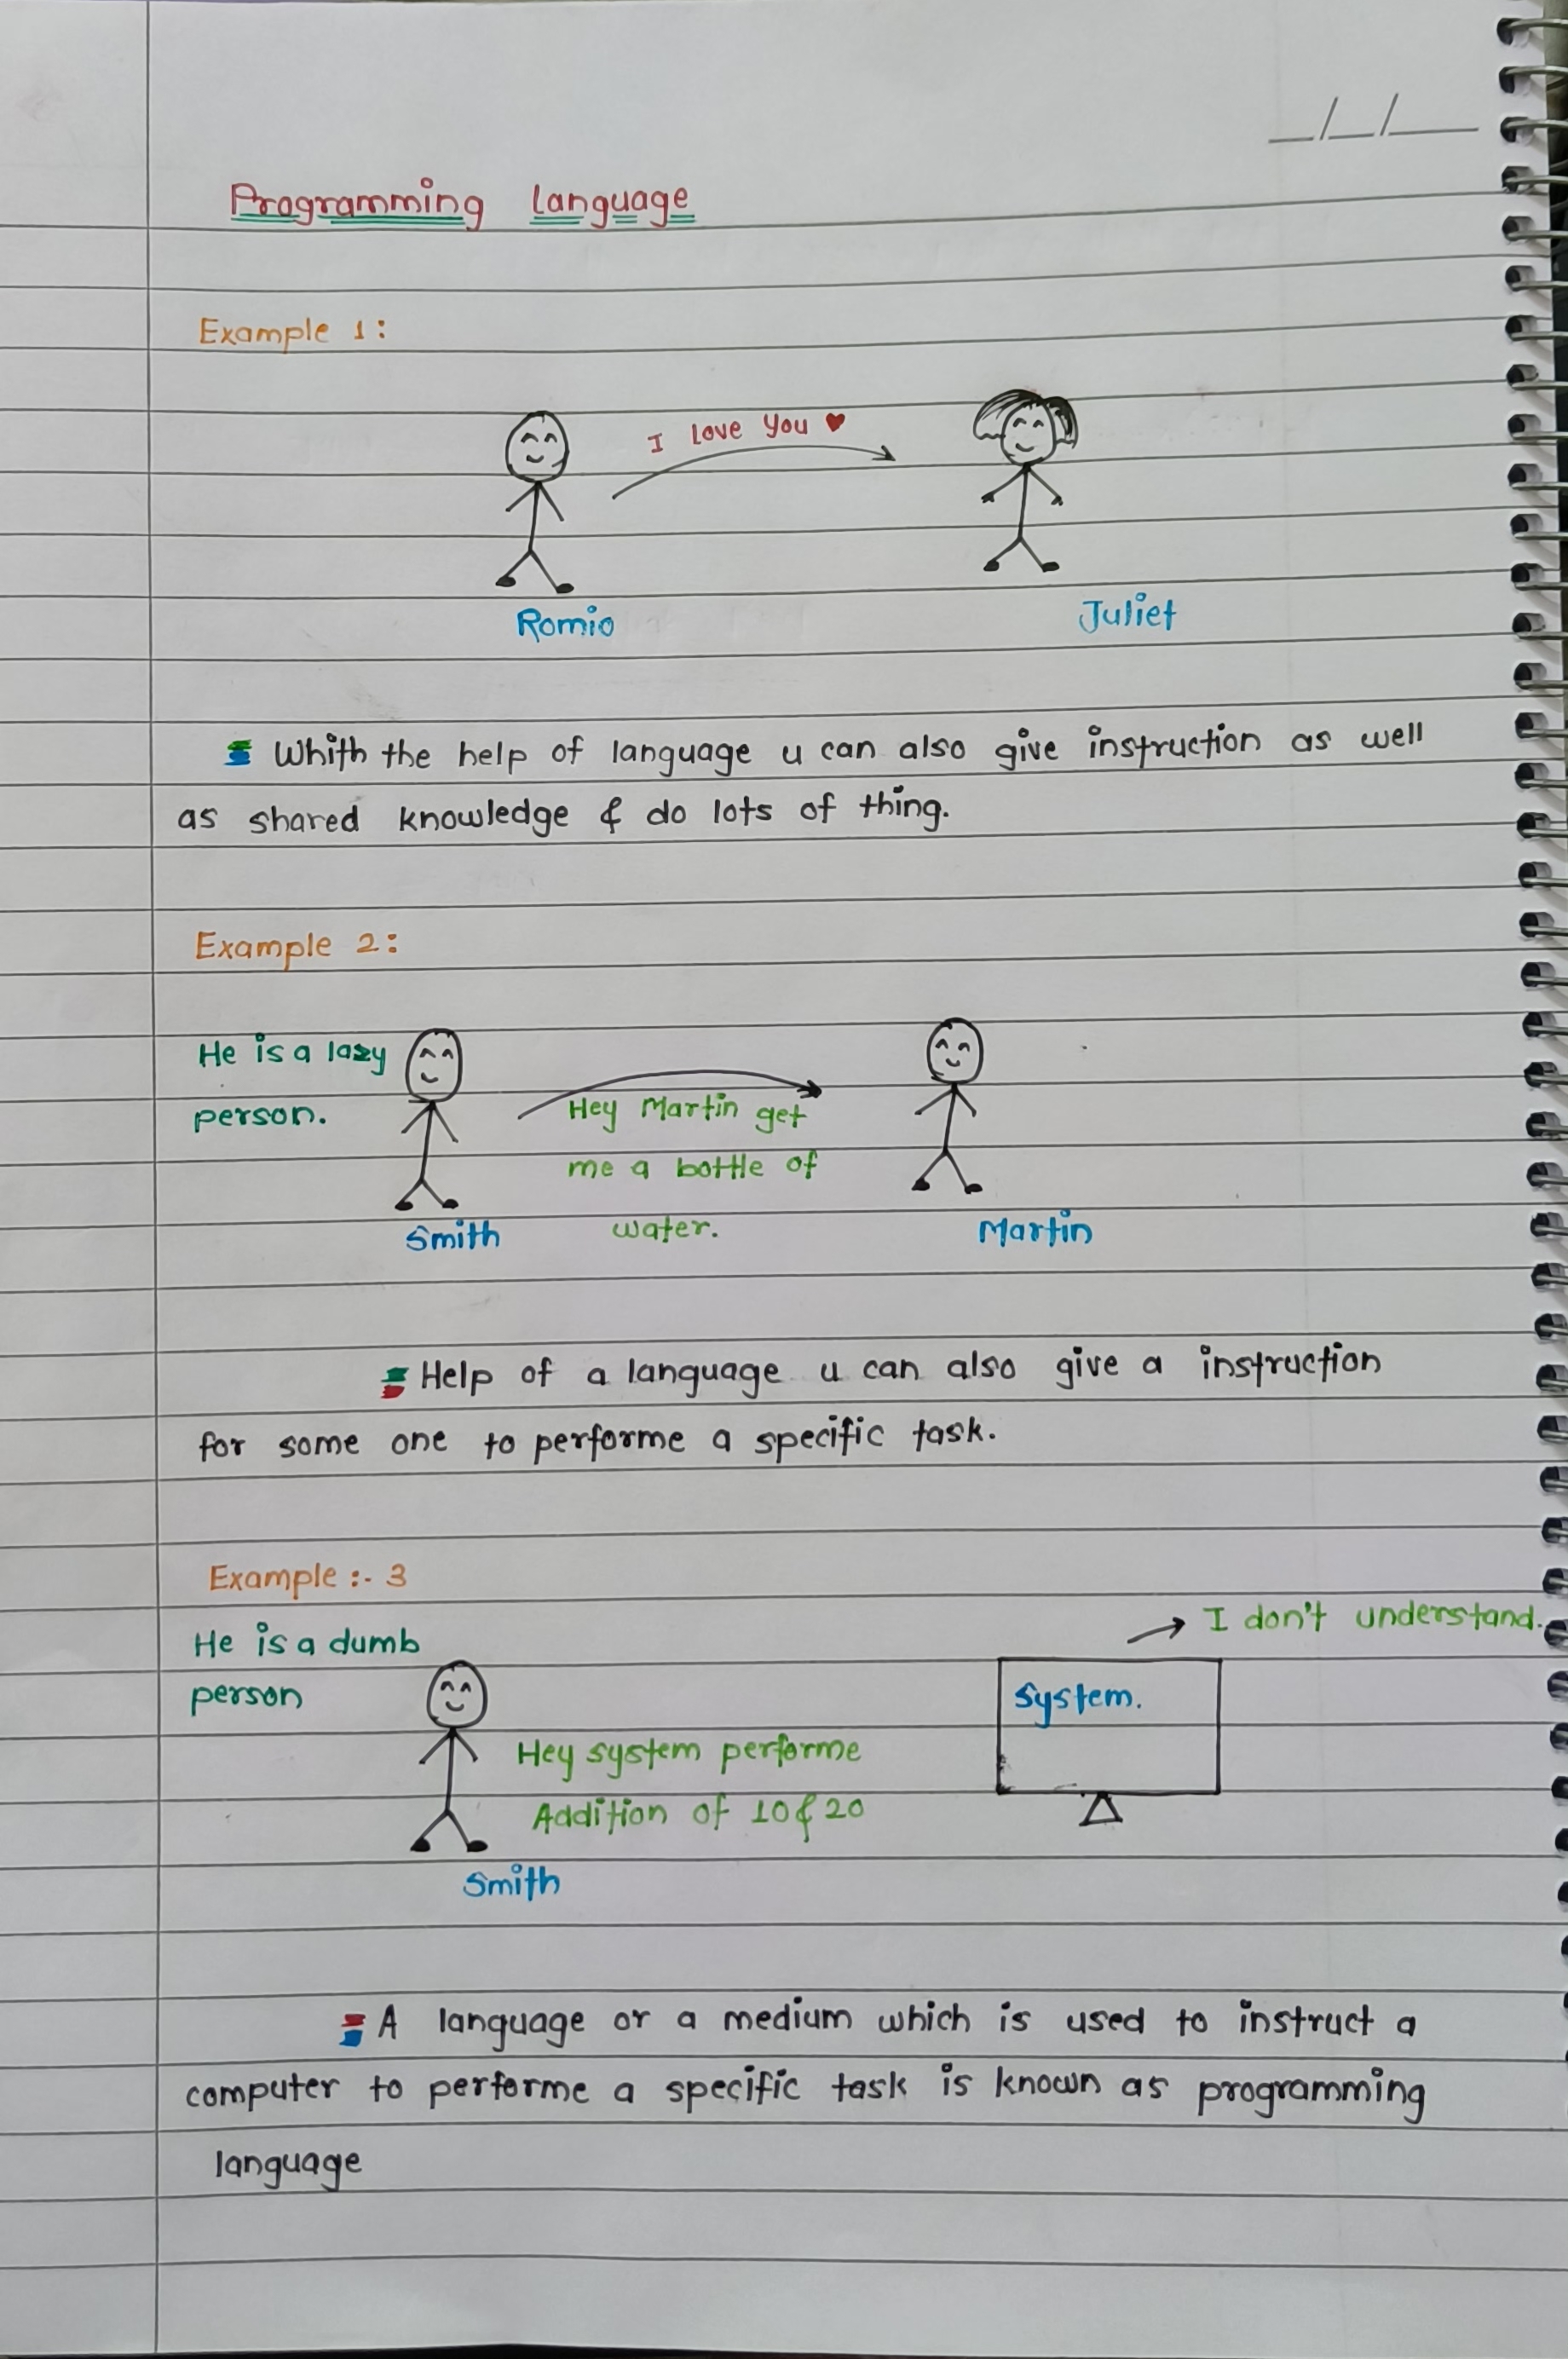 __/__/____
Programming language
Example 1:
I love you ♥
Romio
Juliet
Whith the help of language u can also give instruction as well
as shared knowledge & do lots of thing.
Example 2:
He is a lazy
person.
Hey Martin get
me a bottle of
water.
Smith
Martin
Help of a language u can also give a instruction
for some one to performe a specific task.
Example :- 3
He is a dumb
person
I don't understand.
System.
Hey system performe
Addition of 10 & 20
Smith
A language or a medium which is used to instruct a
computer to performe a specific task is known as programming
language